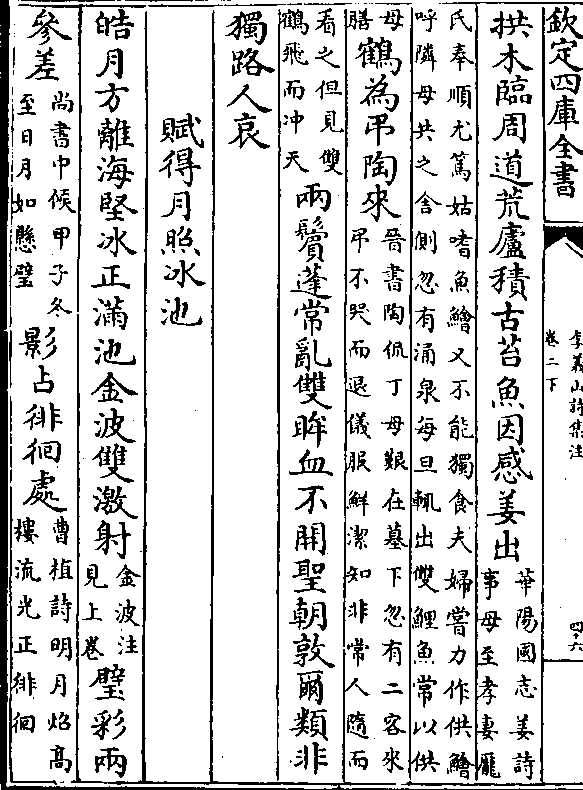 欽定四庫全書
李義山詩集注
卷二下
四十六
拱木臨周道荒廬積古苔魚因感姜出華陽國志姜詩
事母至孝妻龎
氏奉順尤篤姑嗜魚鱠又不能獨食夫婦嘗力作供鱠
呼隣母共之舍側忽有涌泉每旦輒出雙鯉魚常以供
母
膳鶴為弔陶來晉書陶侃丁母艱在墓下忽有二客來
弔不哭而退儀服鮮潔知非常人隨而
看之但見雙
鶴飛而冲天兩鬢蓬常亂雙眸血不開聖朝敦爾類非
獨路人哀
賦得月照冰池
皓月方離海堅冰正滿池金波雙激射金波注
見上卷璧彩兩
參差尚書中候甲子冬
至日月如懸璧影占徘徊處曹植詩明月炤髙
樓流光正徘徊